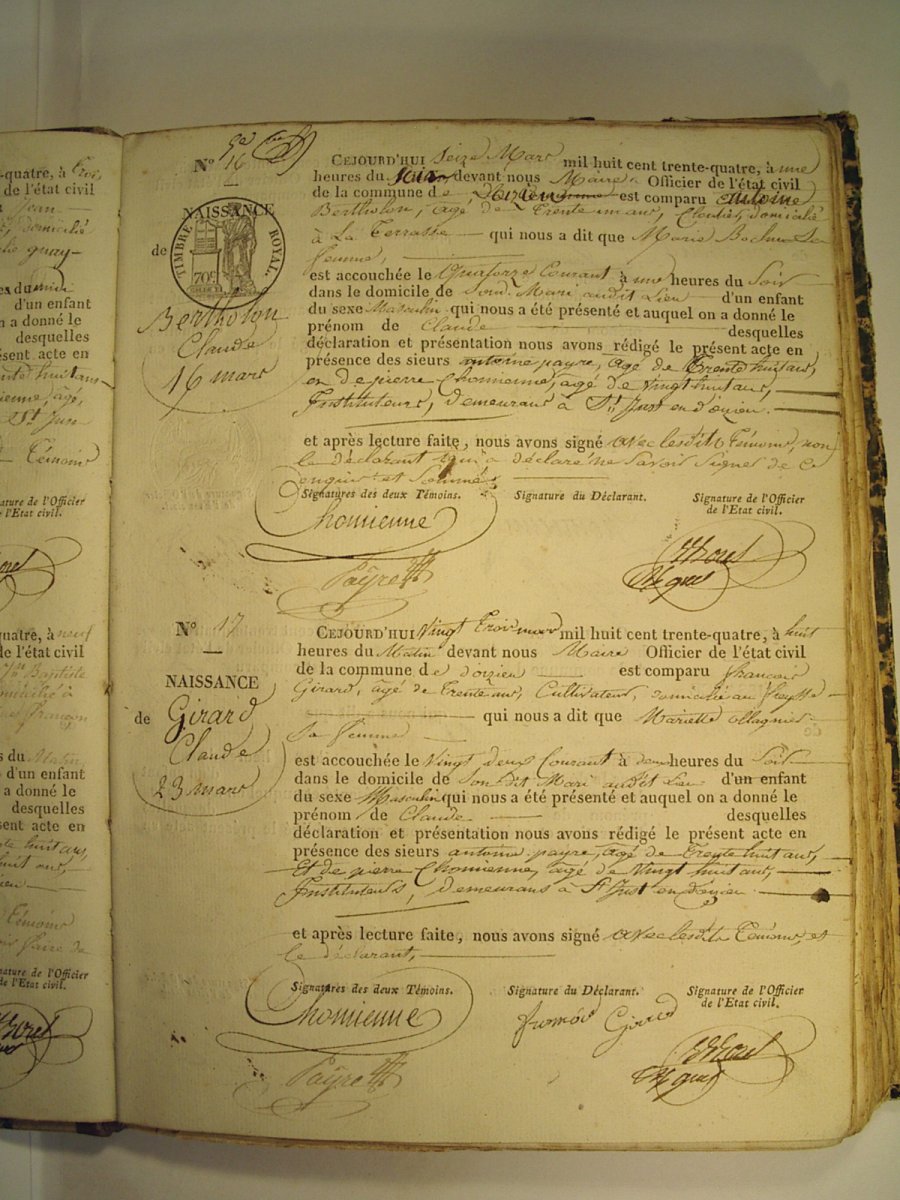 -quatre, à trois
de l'état civil
Jean
domicilié
quay-
es du midi
d'un enfant
n a donné le
desquelles
ésent acte en
St Jus
Témoins
nature de l'Officier
e l'Etat civil.
quatre, à neuf
de l'état civil
Jn Baptiste
domicilié à
françois
s du Matin
d'un enfant
a donné le
desquelles
sent acte en
huit ans,
Témoins
nature de l'Officier
de l'Etat civil.
N° 16
NAISSANCE
de
TIMBRE ROYAL.
70c
Bertholon
Claude
16 mars
CEJOURD'HUI Seize Mars mil huit cent trente-quatre, à une
heures du soir devant nous Maire Officier de l'état civil
de la commune de Doizieu est comparu antoine
Bertholon, agé de Trente un ans, Cloutier, domicilié
à La Terrasse qui nous a dit que Marie Sa
femme,
est accouchée le Quatorze Courant à une heures du Soir
dans le domicile de Sond. Mari audit Lieu d'un enfant
du sexe Masculin qui nous a été présenté et auquel on a donné le
prénom de Claude desquelles
déclaration et présentation nous avons rédigé le présent acte en
présence des sieurs antoine payre, agé de Trente huit ans,
et de pierre Chomienne, agé de vingt huit ans,
Instituteurs, demeurans à St Just en doizieu.
et après lecture faite, nous avons signé avec lesdits Témoins, non
le déclarant qui a déclaré ne Savoir Signer de ce
enquis et Sommé
Signatures des deux Témoins. Signature du Déclarant. Signature de l'Officier
de l'Etat civil.
Chomienne
Payre
N° 17
NAISSANCE
de Girard
Claude
23 mars
CEJOURD'HUI Vingt Trois mars mil huit cent trente-quatre, à huit
heures du Matin devant nous Maire Officier de l'état civil
de la commune de doizieu est comparu françois
Girard, agé de Trente ans, Cultivateur domicilié au
qui nous a dit que Mariette ollagnier
Sa femme
est accouchée le Vingt deux Courant à deux heures du Soir
dans le domicile de Son dit Mari audit Lieu d'un enfant
du sexe Masculin qui nous a été présenté et auquel on a donné le
prénom de Claude desquelles
déclaration et présentation nous avons rédigé le présent acte en
présence des sieurs antoine payre, agé de Trente huit ans,
Et de pierre Chomienne, agé de Vingt huit ans,
Instituteurs, demeurans à St Just en Doizieu
et après lecture faite, nous avons signé avec lesdits Témoins et
le déclarant,
Signatures des deux Témoins. Signature du Déclarant. Signature de l'Officier
de l'Etat civil.
Chomienne
françois Girard
Payre